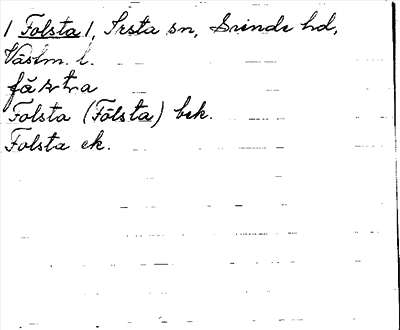 / Folsta /, Irsta sn, Siende hd,
Västm. l.
Folsta (Fålsta) bek.
Folsta ek.